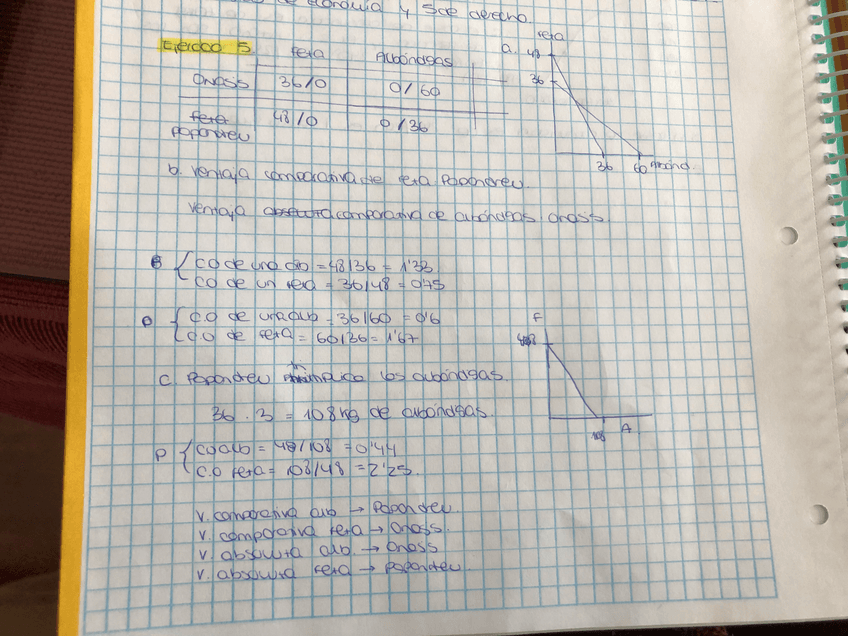 de economía y 5 de derecho.
Ejercicio 5
Feta Albóndigas
Onass 36/0 0/60
feta
papandreu 48/0 0/36
a. feta
48
36
36 60 Albónd.
b. Ventaja comparativa de feta Papandreu.
Ventaja absoluta comparativa de albóndigas Onass.
P CO de una alb = 48/36 = 1'33
CO de un feta = 36/48 = 0'75
O C.O de una alb = 36/60 = 0'6
C.O de feta = 60/36 = 1'67
F
48
108 A
c. Papandreu triplica las albóndigas.
36 · 3 = 108 kg de albóndigas.
P CO alb = 48/108 = 0'44
C.O feta = 108/48 = 2'25
V. comparativa alb → Papandreu.
V. comparativa feta → Onass.
V. absoluta alb. → Onass
V. absoluta feta → Papandreu